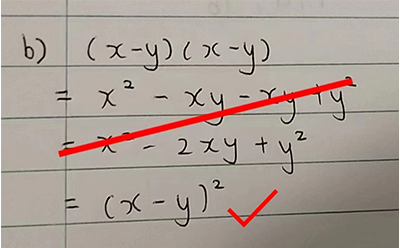 b) (x-y)(x-y)
= x² - xy - xy + y²
= x² - 2xy + y²
= (x-y)²